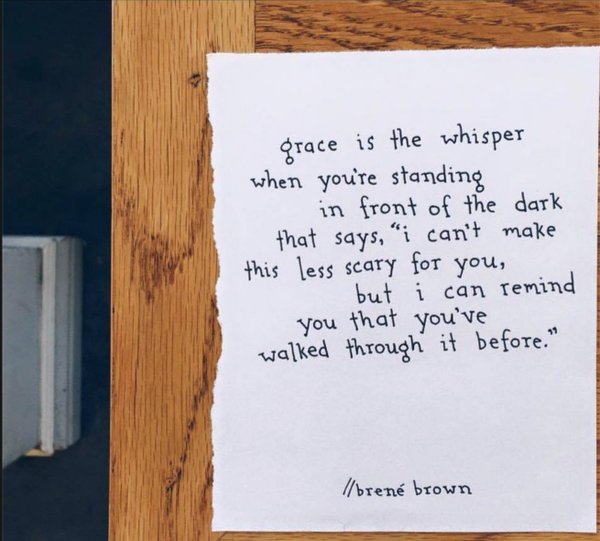 grace is the whisper
when you're standing
in front of the dark
that says, "i can't make
this less scary for you,
but i can remind
you that you've
walked through it before."
//brené brown